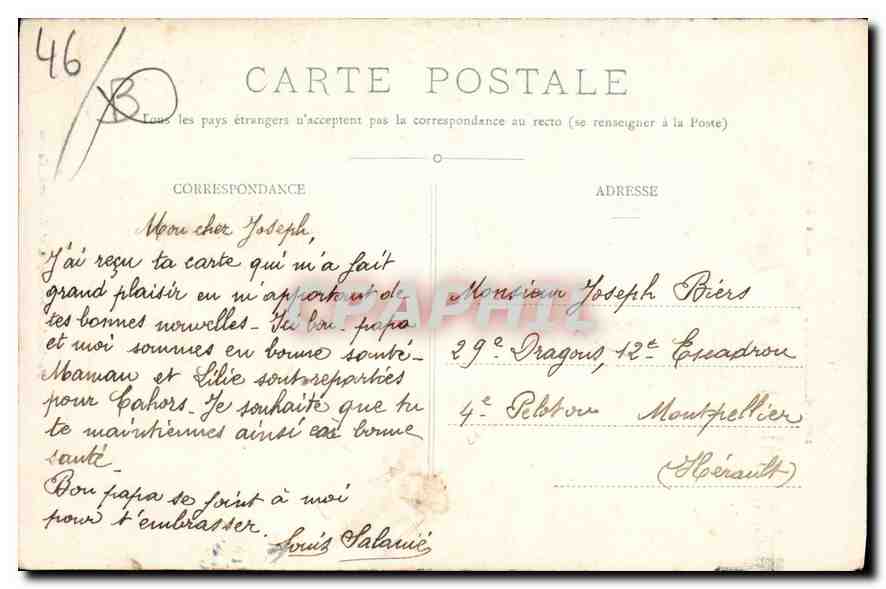 46
B
CARTE POSTALE
Tous les pays étrangers n'acceptent pas la correspondance au recto (se renseigner à la Poste)
CORRESPONDANCE
Mon cher Joseph,
J'ai reçu ta carte qui m'a fait
grand plaisir en m'apportant de
tes bonnes nouvelles - Ici bon-papa
et moi sommes en bonne santé -
Maman et Lilie sont reparties
pour Cahors - Je souhaite que tu
te maintiennes ainsi en bonne
santé -
Bon papa se joint à moi
pour t'embrasser.
Louis Salanié
ADRESSE
Monsieur Joseph Biers
29e Dragons, 12e Escadron
4e Peloton Montpellier
(Hérault)
CPAPHIL